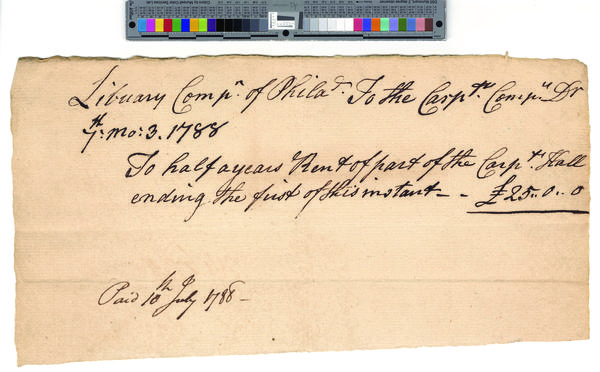 Library Compn. of Philad. To the Carptrs. Compy. Dr
7th. mo: 3. 1788
To half a years Rent of part of the Carptrs Hall
ending the first of this instant - - £25..0..0
Paid 10th July 1788 -